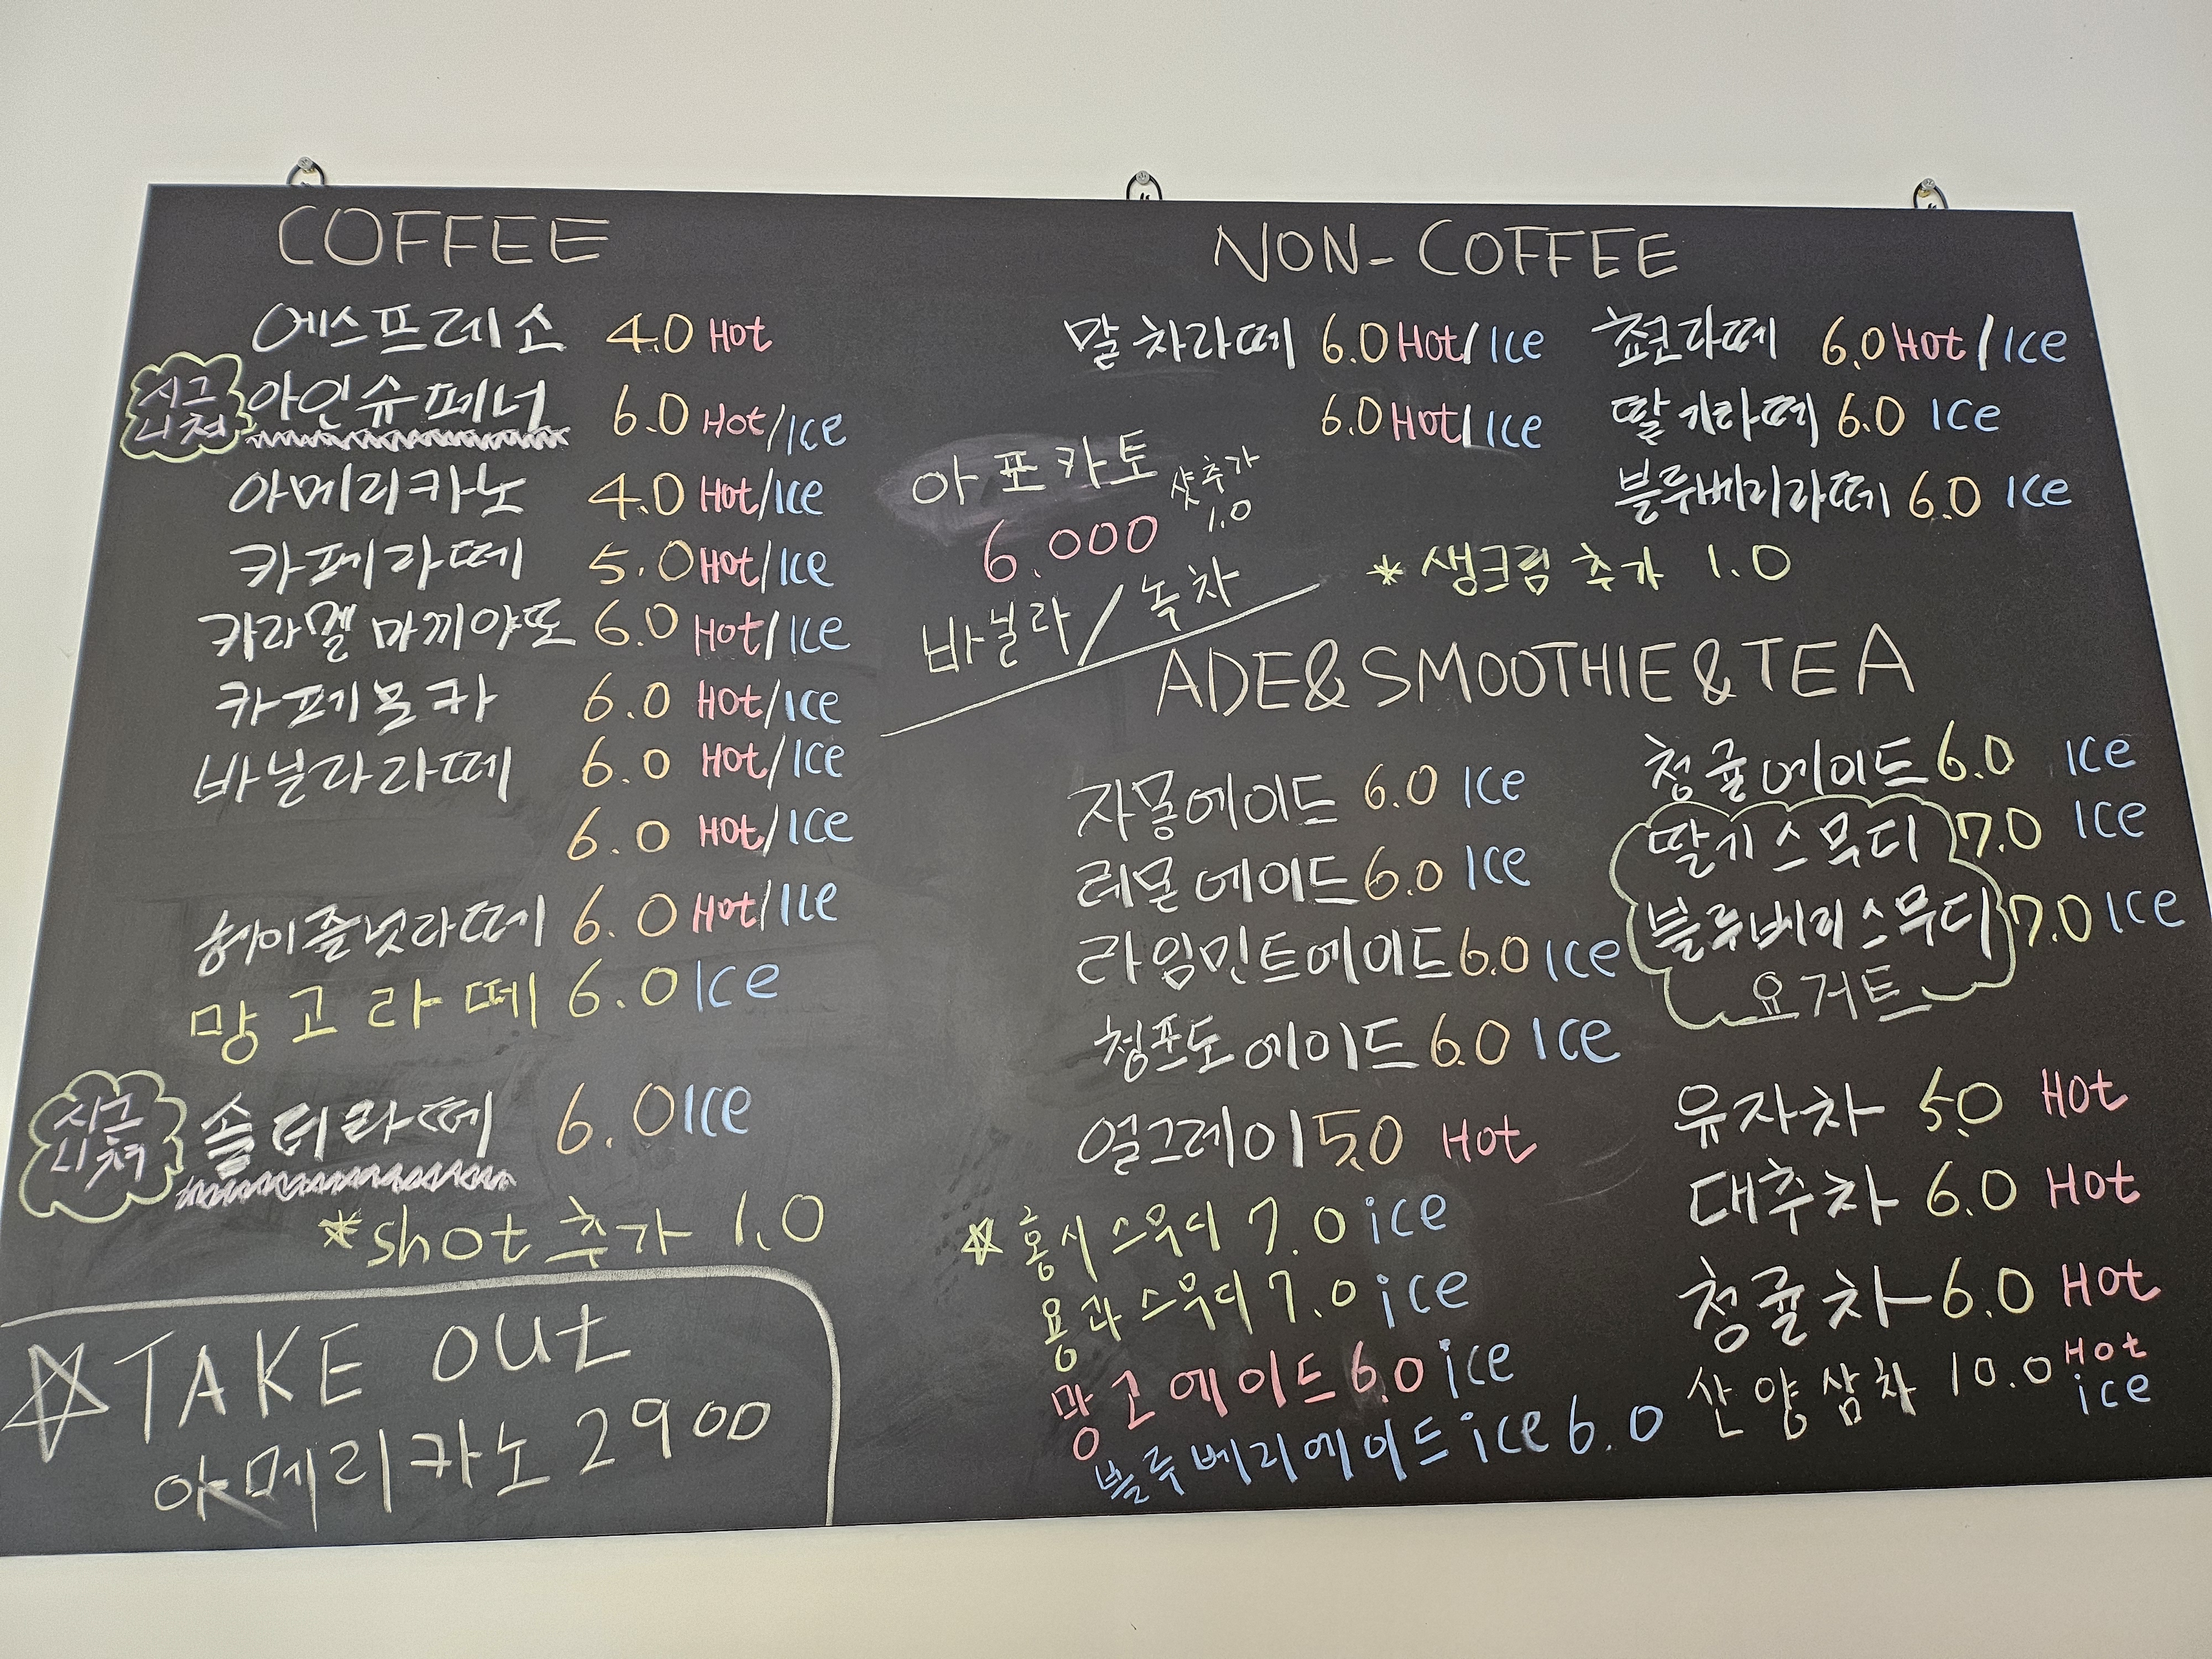 COFFEE
에스프레소 4.0 Hot
시그니처 아인슈페너 6.0 Hot/Ice
아메리카노 4.0 Hot/Ice
카페라떼 5.0 Hot/Ice
카라멜 마끼야또 6.0 Hot/Ice
카페모카 6.0 Hot/Ice
바닐라라떼 6.0 Hot/Ice
6.0 Hot/Ice
헤이즐넛라떼 6.0 Hot/Ice
망고라떼 6.0 Ice
시그니처 솔티라떼 6.0 Ice
*shot 추가 1.0
☆TAKE out
아메리카노 2900
NON-COFFEE
말차라떼 6.0 Hot/Ice
6.0 Hot/Ice
쵸코라떼 6.0 Hot/Ice
딸기라떼 6.0 Ice
블루베리라떼 6.0 Ice
*생크림 추가 1.0
아포카토
샷추가
1.0
6.000
바닐라/녹차
ADE&SMOOTHIE&TEA
자몽에이드 6.0 Ice
레몬에이드 6.0 Ice
라임민트에이드 6.0 Ice
청포도에이드 6.0 Ice
얼그레이 5.0 Hot
☆홍시스무디 7.0 ice
용과스무디 7.0 ice
망고에이드 6.0 ice
블루베리에이드 ice 6.0
청귤에이드 6.0 Ice
딸기스무디 7.0 Ice
블루베리스무디 7.0 Ice
요거트
유자차 5.0 Hot
대추차 6.0 Hot
청귤차 6.0 Hot
산양삼차 10.0 Hot
ice